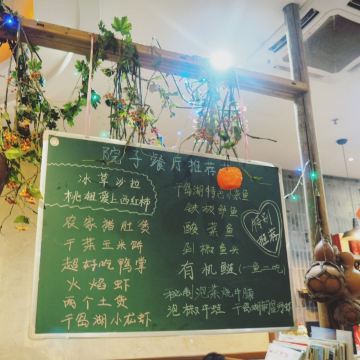 院子餐厅推荐
冰草沙拉
桃姐爱上西红柿
农家猪肚煲
干菜玉米饼
超好吃鸭掌
火焰虾
两个土货
千岛湖小龙虾
千岛湖特色小菜鱼
铁板鲈鱼
酸菜鱼
剁椒鱼头
有机鲢(一鱼二吃)
秘制泡菜烧牛腩
泡椒牛蛙
特别推荐